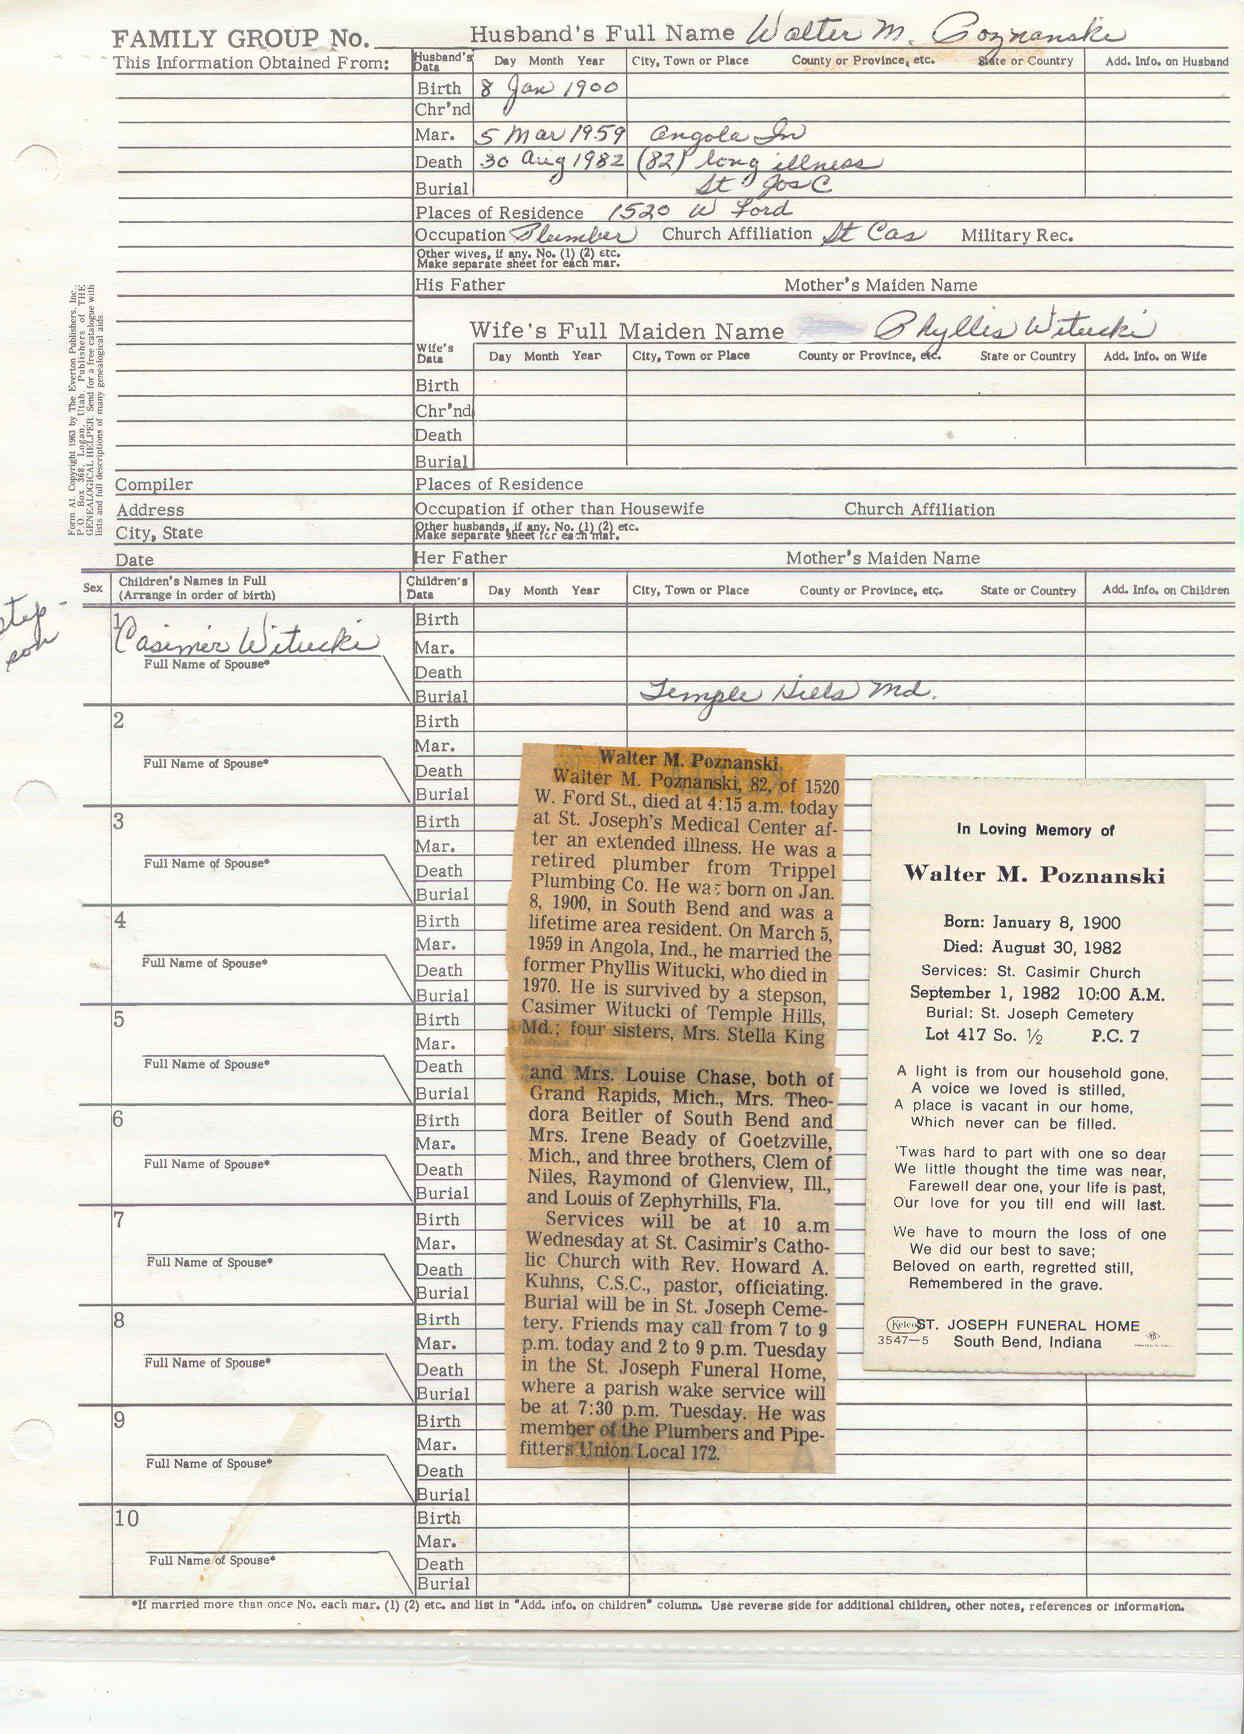 FAMILY GROUP No.
Husband's Full Name Walter M. Poznanski
This Information Obtained From:
Husband's Data Day Month Year City, Town or Place County or Province, etc. State or Country Add. Info. on Husband
Birth 8 Jan 1900
Chr'nd
Mar. 5 Mar 1959 Angola In
Death 30 Aug 1982 (82) long illness
Burial St Jos C
Places of Residence 1520 W Ford
Occupation Plumber Church Affiliation St Cas Military Rec.
Other wives, if any. No. (1) (2) etc.
Make separate sheet for each mar.
His Father Mother's Maiden Name
Wife's Full Maiden Name Phyllis Witucki
Wife's Data Day Month Year City, Town or Place County or Province, etc. State or Country Add. Info. on Wife
Birth
Chr'nd
Death
Burial
Compiler Places of Residence
Address Occupation if other than Housewife Church Affiliation
City, State Other husbands, if any. No. (1) (2) etc.
Make separate sheet for each mar.
Date Her Father Mother's Maiden Name
Form A1. Copyright 1963 by The Everton Publishers, Inc.,
P.O. Box 368, Logan, Utah Publishers of THE
GENEALOGICAL HELPER Send for a free catalogue with
lists and full descriptions of many genealogical aids
Sex Children's Names in Full
(Arrange in order of birth)
Children's Data Day Month Year City, Town or Place County or Province, etc. State or Country Add. Info. on Children
step-
son
1 Casimer Witucki
Full Name of Spouse*
Birth
Mar.
Death
Burial Temple Hills Md.
2
Full Name of Spouse*
Birth
Mar.
Death
Burial
3
Full Name of Spouse*
Birth
Mar.
Death
Burial
4
Full Name of Spouse*
Birth
Mar.
Death
Burial
5
Full Name of Spouse*
Birth
Mar.
Death
Burial
6
Full Name of Spouse*
Birth
Mar.
Death
Burial
7
Full Name of Spouse*
Birth
Mar.
Death
Burial
8
Full Name of Spouse*
Birth
Mar.
Death
Burial
9
Full Name of Spouse*
Birth
Mar.
Death
Burial
10
Full Name of Spouse*
Birth
Mar.
Death
Burial
Walter M. Poznanski
Walter M. Poznanski, 82, of 1520
W. Ford St., died at 4:15 a.m. today
at St. Joseph's Medical Center af-
ter an extended illness. He was a
retired plumber from Trippel
Plumbing Co. He was born on Jan.
8, 1900, in South Bend and was a
lifetime area resident. On March 5,
1959 in Angola, Ind., he married the
former Phyllis Witucki, who died in
1970. He is survived by a stepson,
Casimer Witucki of Temple Hills,
Md.; four sisters, Mrs. Stella King
and Mrs. Louise Chase, both of
Grand Rapids, Mich., Mrs. Theo-
dora Beitler of South Bend and
Mrs. Irene Beady of Goetzville,
Mich., and three brothers, Clem of
Niles, Raymond of Glenview, Ill.,
and Louis of Zephyrhills, Fla.
Services will be at 10 a.m
Wednesday at St. Casimir's Catho-
lic Church with Rev. Howard A.
Kuhns, C.S.C., pastor, officiating.
Burial will be in St. Joseph Ceme-
tery. Friends may call from 7 to 9
p.m. today and 2 to 9 p.m. Tuesday
in the St. Joseph Funeral Home,
where a parish wake service will
be at 7:30 p.m. Tuesday. He was
member of the Plumbers and Pipe-
fitters Union Local 172.
In Loving Memory of
Walter M. Poznanski
Born: January 8, 1900
Died: August 30, 1982
Services: St. Casimir Church
September 1, 1982 10:00 A.M.
Burial: St. Joseph Cemetery
Lot 417 So. ½ P.C. 7
A light is from our household gone,
A voice we loved is stilled,
A place is vacant in our home,
Which never can be filled.
'Twas hard to part with one so dear
We little thought the time was near,
Farewell dear one, your life is past,
Our love for you till end will last.
We have to mourn the loss of one
We did our best to save;
Beloved on earth, regretted still,
Remembered in the grave.
Kelco ST. JOSEPH FUNERAL HOME
3547-5 South Bend, Indiana
*If married more than once No. each mar. (1) (2) etc. and list in "Add. info. on children" column. Use reverse side for additional children, other notes, references or information.